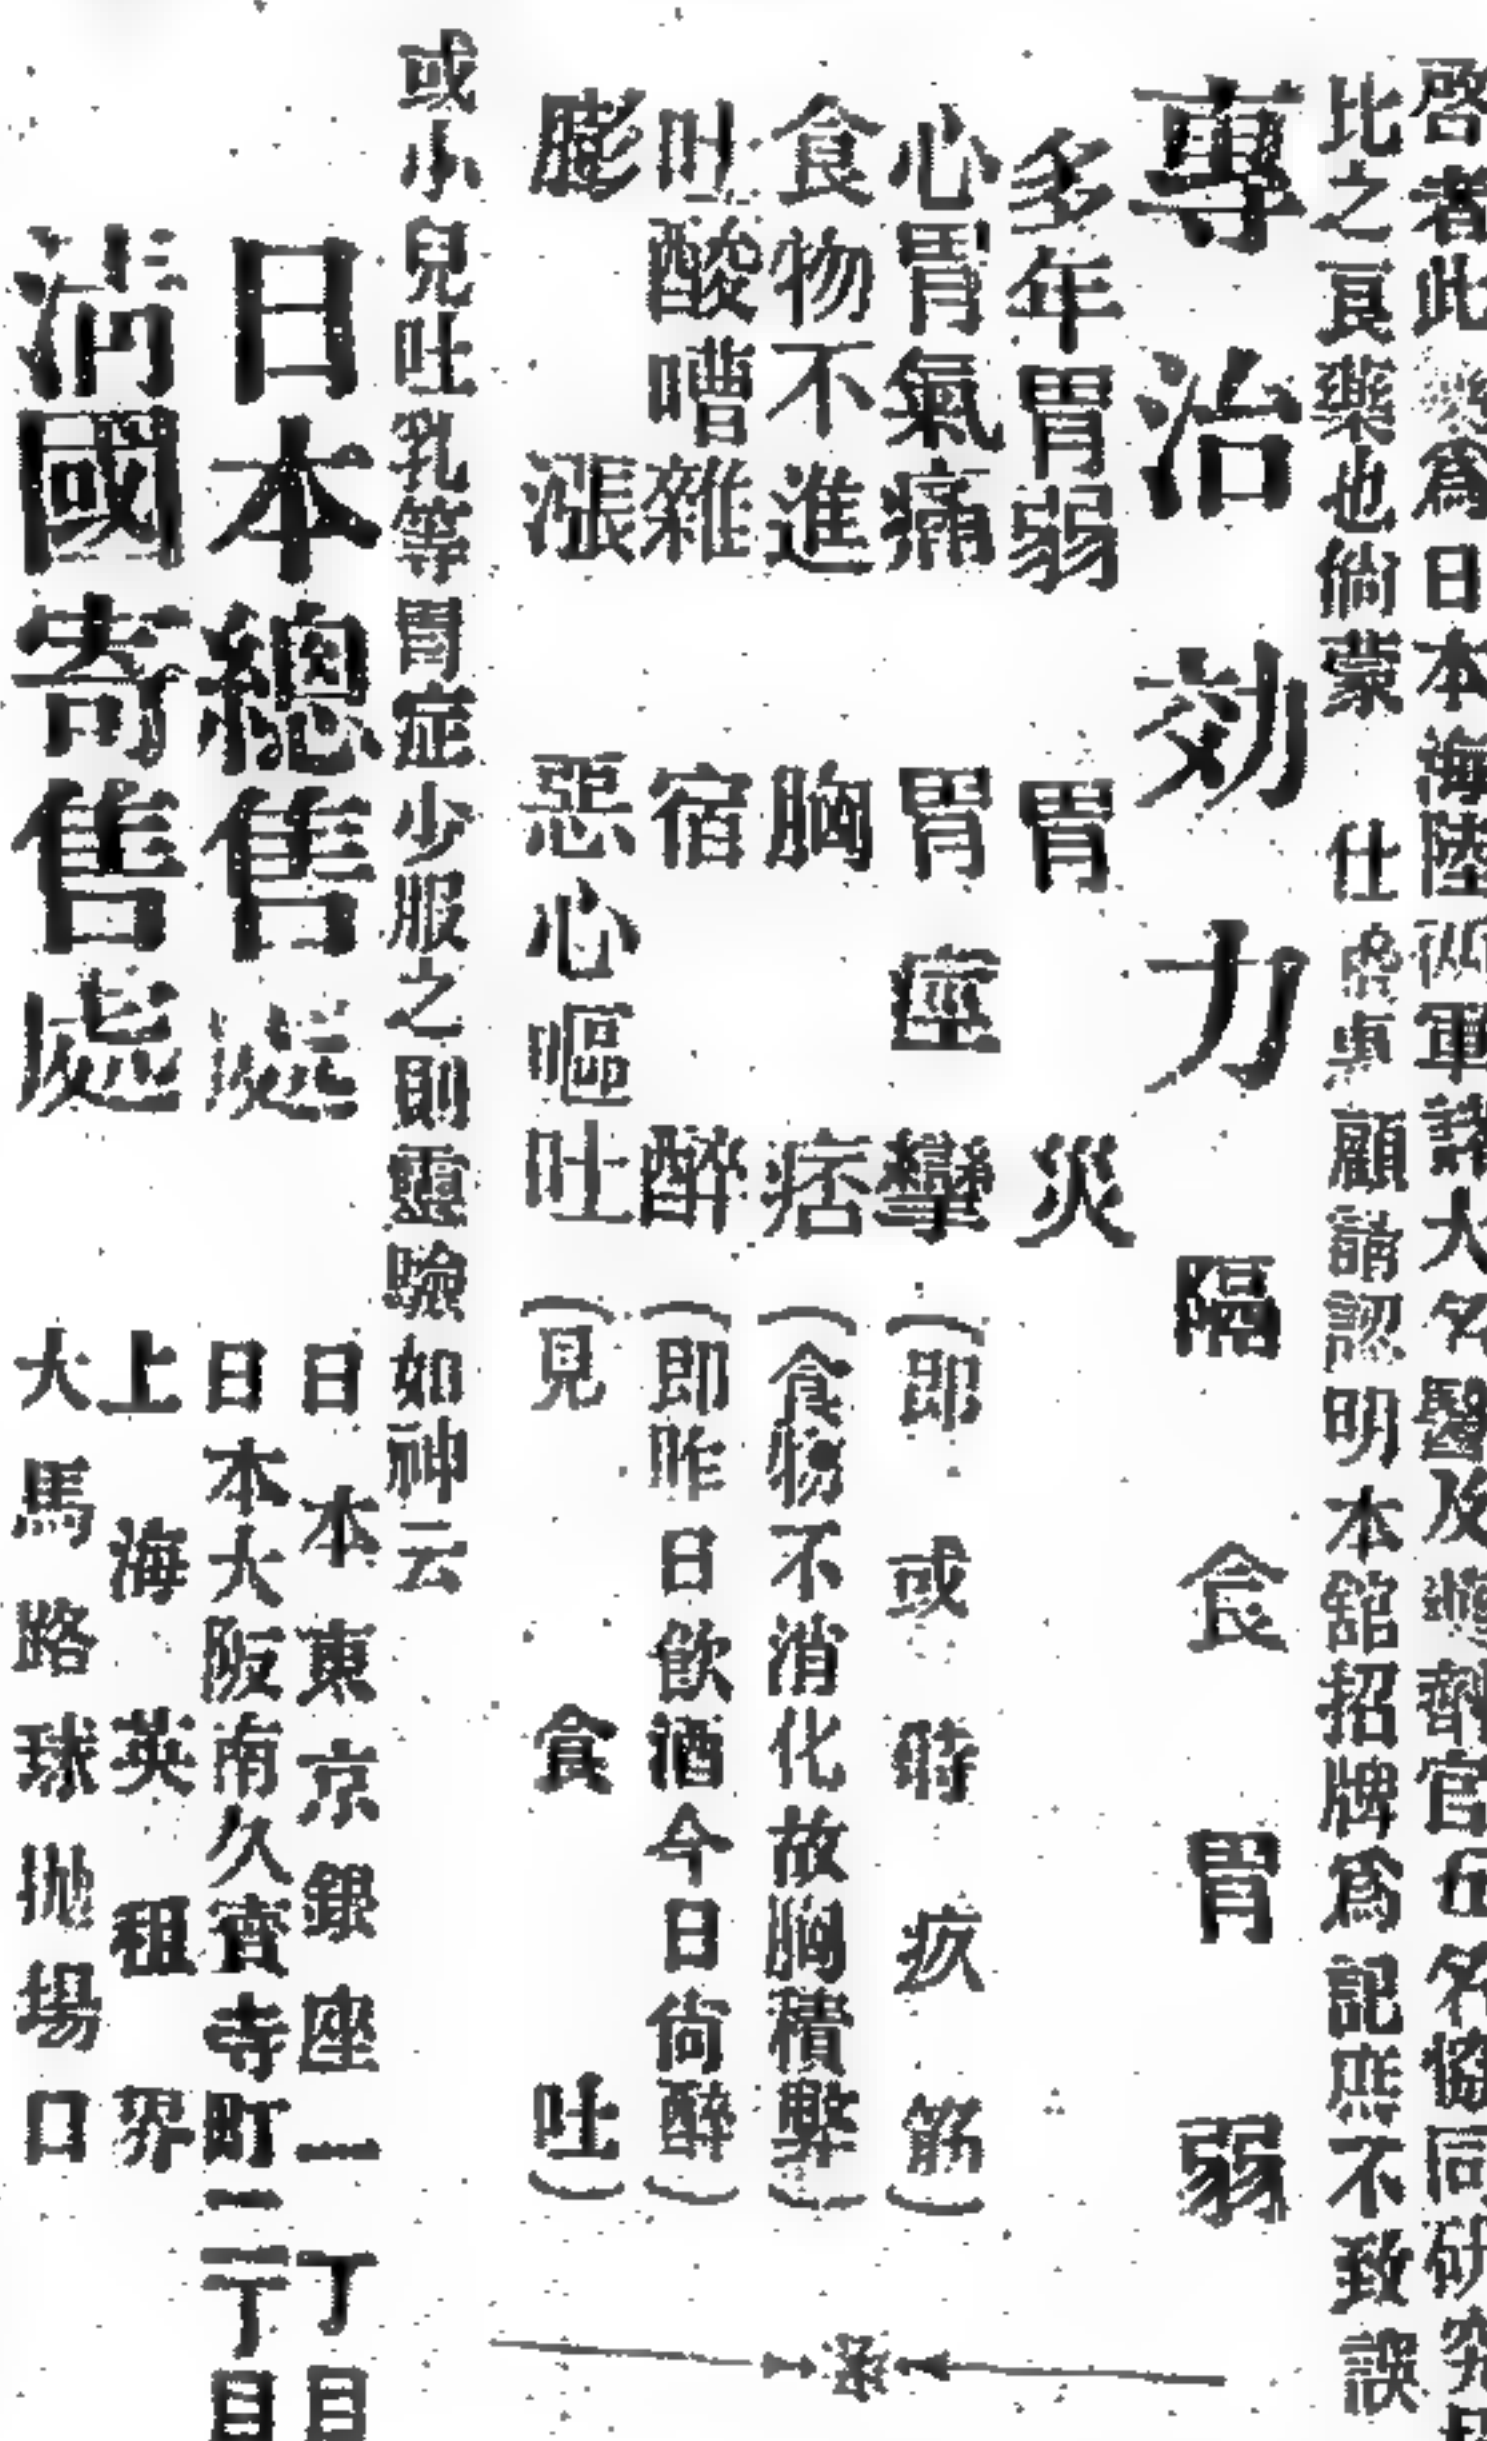 啓者此藥爲日本海陸兩軍諸大名醫及藥劑官五名協同研究
比之良藥也倘蒙　仕商惠顧請認明本舘招牌爲記庶不致誤
專治効力　隔食胃弱
多年胃弱　胃災
心胃氣痛　胃痙攣（即或時疚筋）
食物不進　胸痞（食物不消化故胸積弊）
吐酸嘈雜　宿醉（即昨日飲酒今日尙醉）
膨漲　惡心嘔吐（見食吐）
或小兒吐乳等胃症少服之則靈驗如神云
日本總售處　日本東京銀座一丁目
日本大阪南久寳寺町二丁目
淸國寄售處　上海英租界
大馬路球抛場口